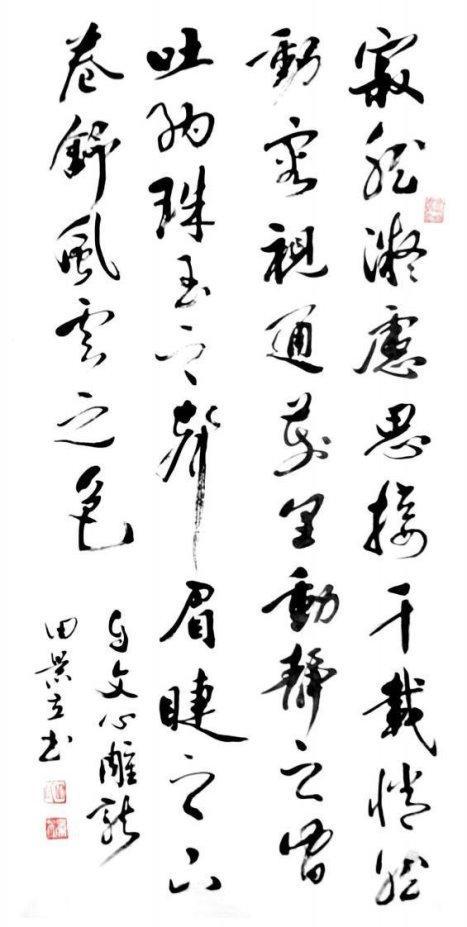 寂然凝慮思接千載悄然
動容視通萬里動靜之間
吐納珠玉之聲眉睫之前
卷舒風雲之色
文心雕龍
田景立书